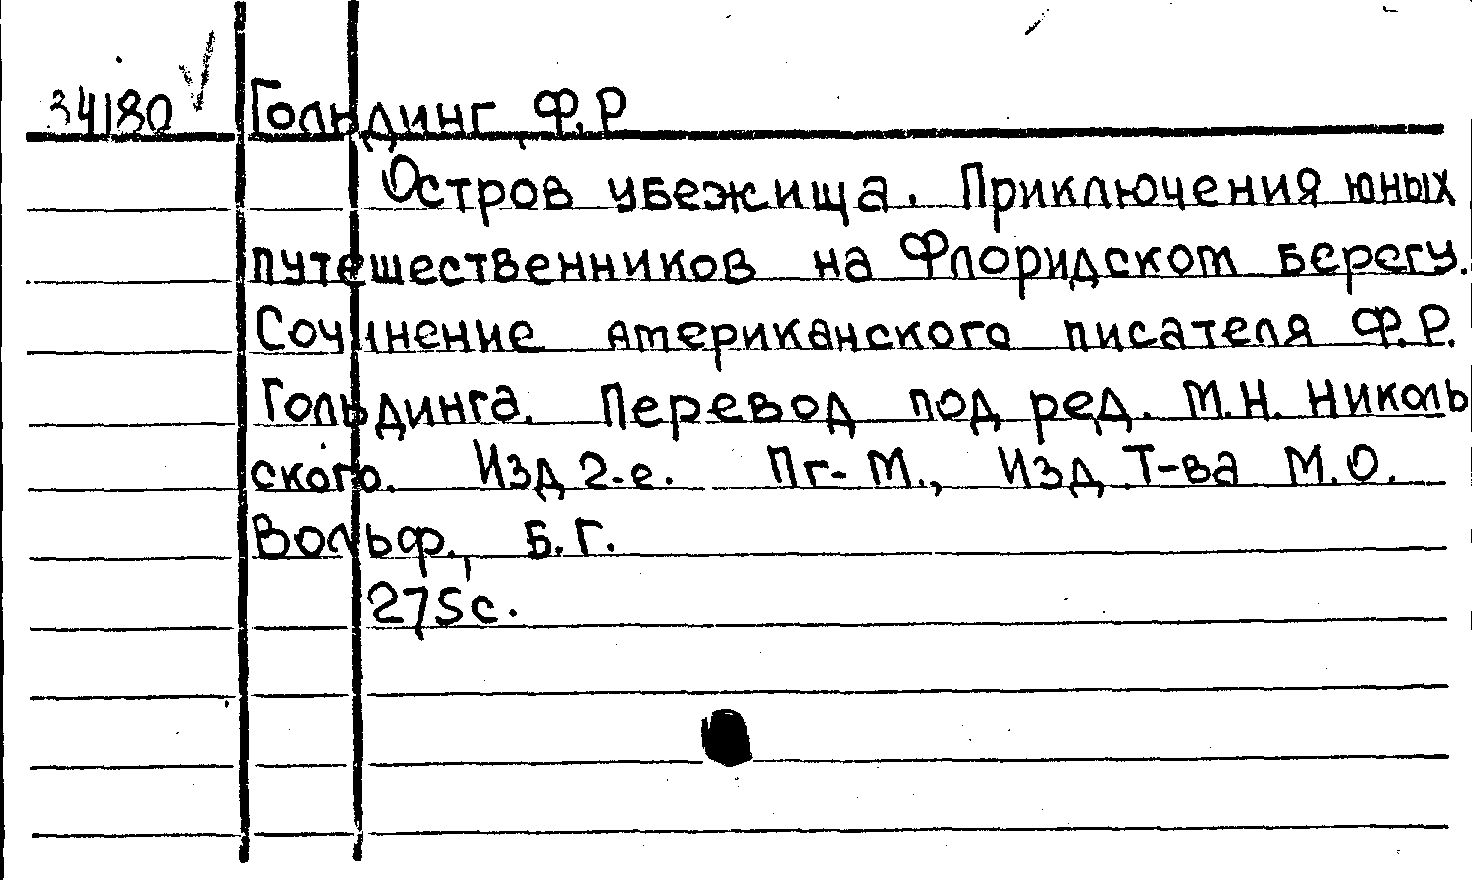 34180 Гольдинг Ф.Р
Остров убежища. Приключения юных
путешественников на Флоридском берегу.
Сочинение американского писателя Ф.Р.
Гольдинга. Перевод под ред. М.Н. Николь
ского. Изд 2-е. Пг-М., Изд Т-ва М.О.
Вольф., Б.Г.
275с.